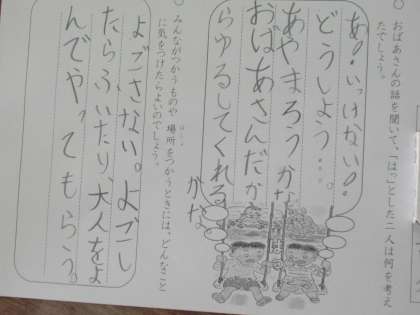 おばあさんの話を聞いて、「はっ」とした二人は何を考え
たでしょう。
あ。いっけない。
どうしよう…。
あやまろうかな
おばあさんだか
らゆるしてくれる
かな。
みんながつかうものや場所をつかうときには、どんなこと
に気をつけたらよいのでしょう。
よごさない。よごし
たらふいたり、大人をよ
んでやってもらう。